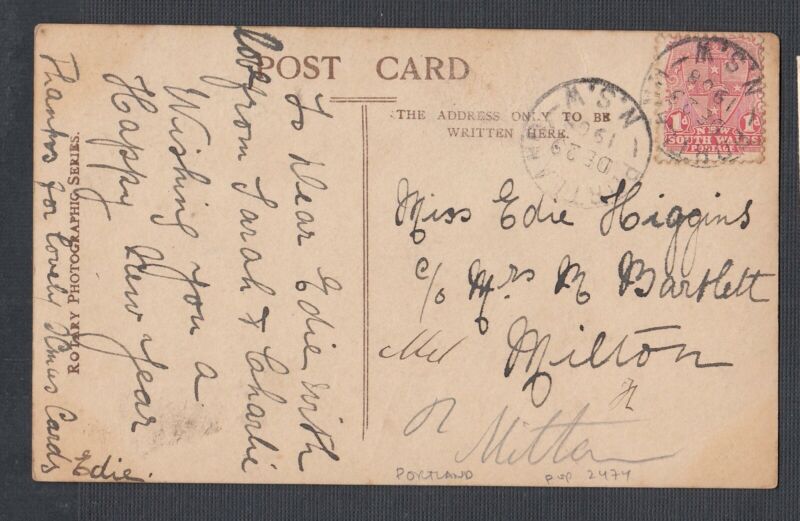 POST CARD
THE ADDRESS ONLY TO BE
WRITTEN HERE.
ROTARY PHOTOGRAPHIC SERIES.
To Dear Edie with
love from Sarah & Charlie
Wishing you a
Happy New Year
Thanks for lovely Xmas Cards
Edie.
Miss Edie Higgins
c/o Mrs M Bartlett
Milton
Milton
PORTLAND
PUP 2474
N.S.W
DE 29
190
PORTLAND
N.S.W
1908
1d
1d
NEW
SOUTH WALES
POSTAGE